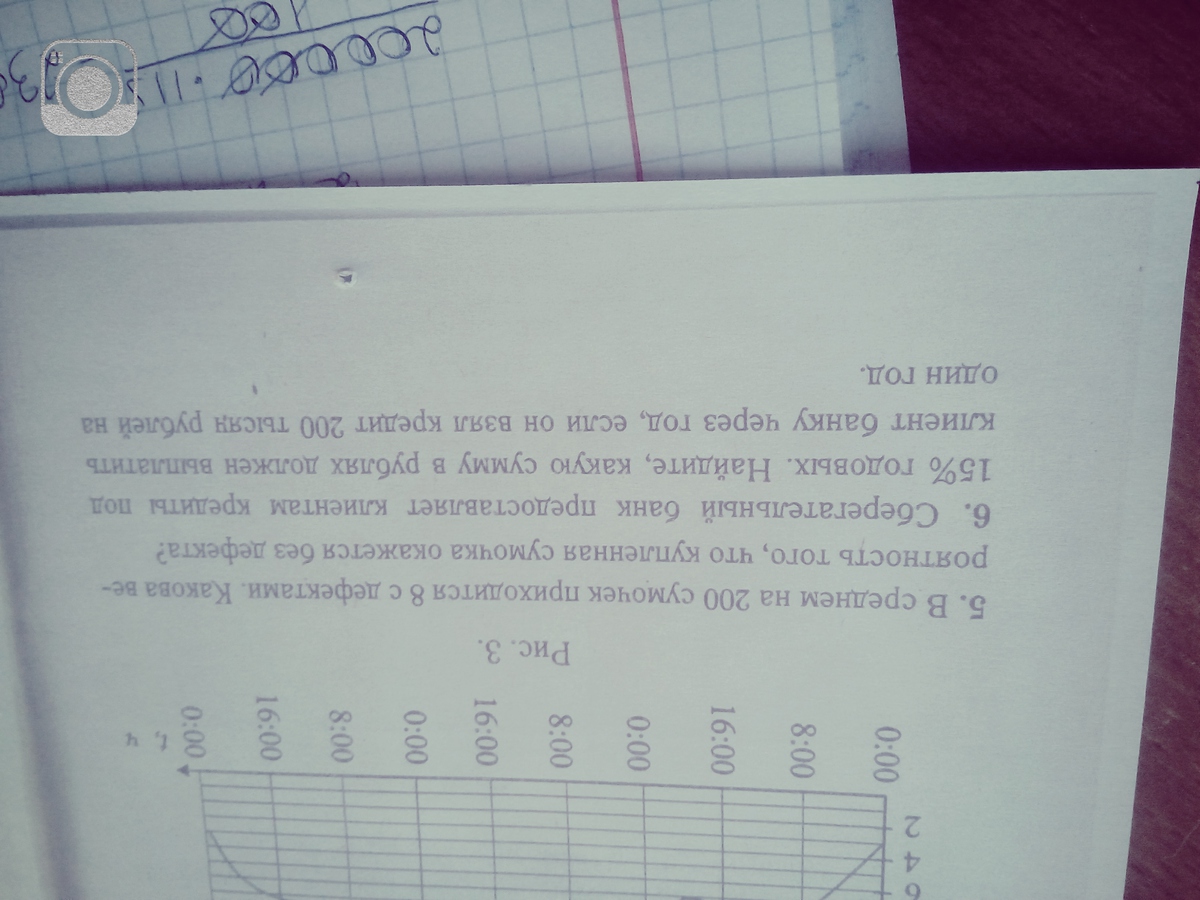 6
4
2
0:00 8:00 16:00 0:00 8:00 16:00 0:00 8:00 16:00 0:00
t, ч
Рис. 3.
5. В среднем на 200 сумочек приходится 8 с дефектами. Какова ве-
роятность того, что купленная сумочка окажется без дефекта?
6. Сберегательный банк предоставляет клиентам кредиты под
15% годовых. Найдите, какую сумму в рублях должен выплатить
клиент банку через год, если он взял кредит 200 тысяч рублей на
один год.
20000 · 11
100